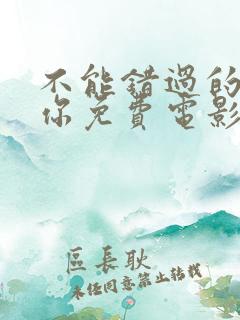 不能錯過的
你免費電影
區長耿
未任同意禁止转载